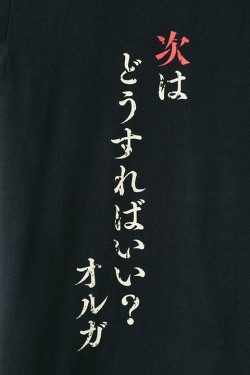 次は
どうすればいい?
オルガ